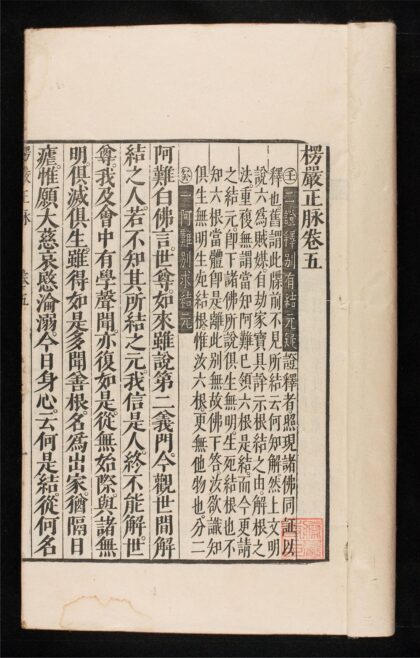 楞嚴正脉卷五
壬二證釋別有結元疑 證釋者照現諸佛同証以
釋也舊謂此牒前不見所結云何知解然上文明
說六爲賊媒自劫家寶具詳示根結之由解根之
法重複無謂當知阿難已領六根是結而今更請
之結元即下諸佛所說俱生無明生死結根也不
知六根當體即是離此別無故佛下答汝欲識知
俱生無明生死結根惟汝六根更無他物也分二
癸一阿難別求結元
阿難白佛言世尊如來雖說第二義門今觀世間解
結之人若不知其所結之元我信是人終不能解世
尊我及會中有學聲聞亦復如是從無始際與諸無
明俱滅俱生雖得如是多聞善根名爲出家猶隔日
瘧惟願大慈哀愍淪溺今日身心云何是結從何名
楞嚴正脉 卷五